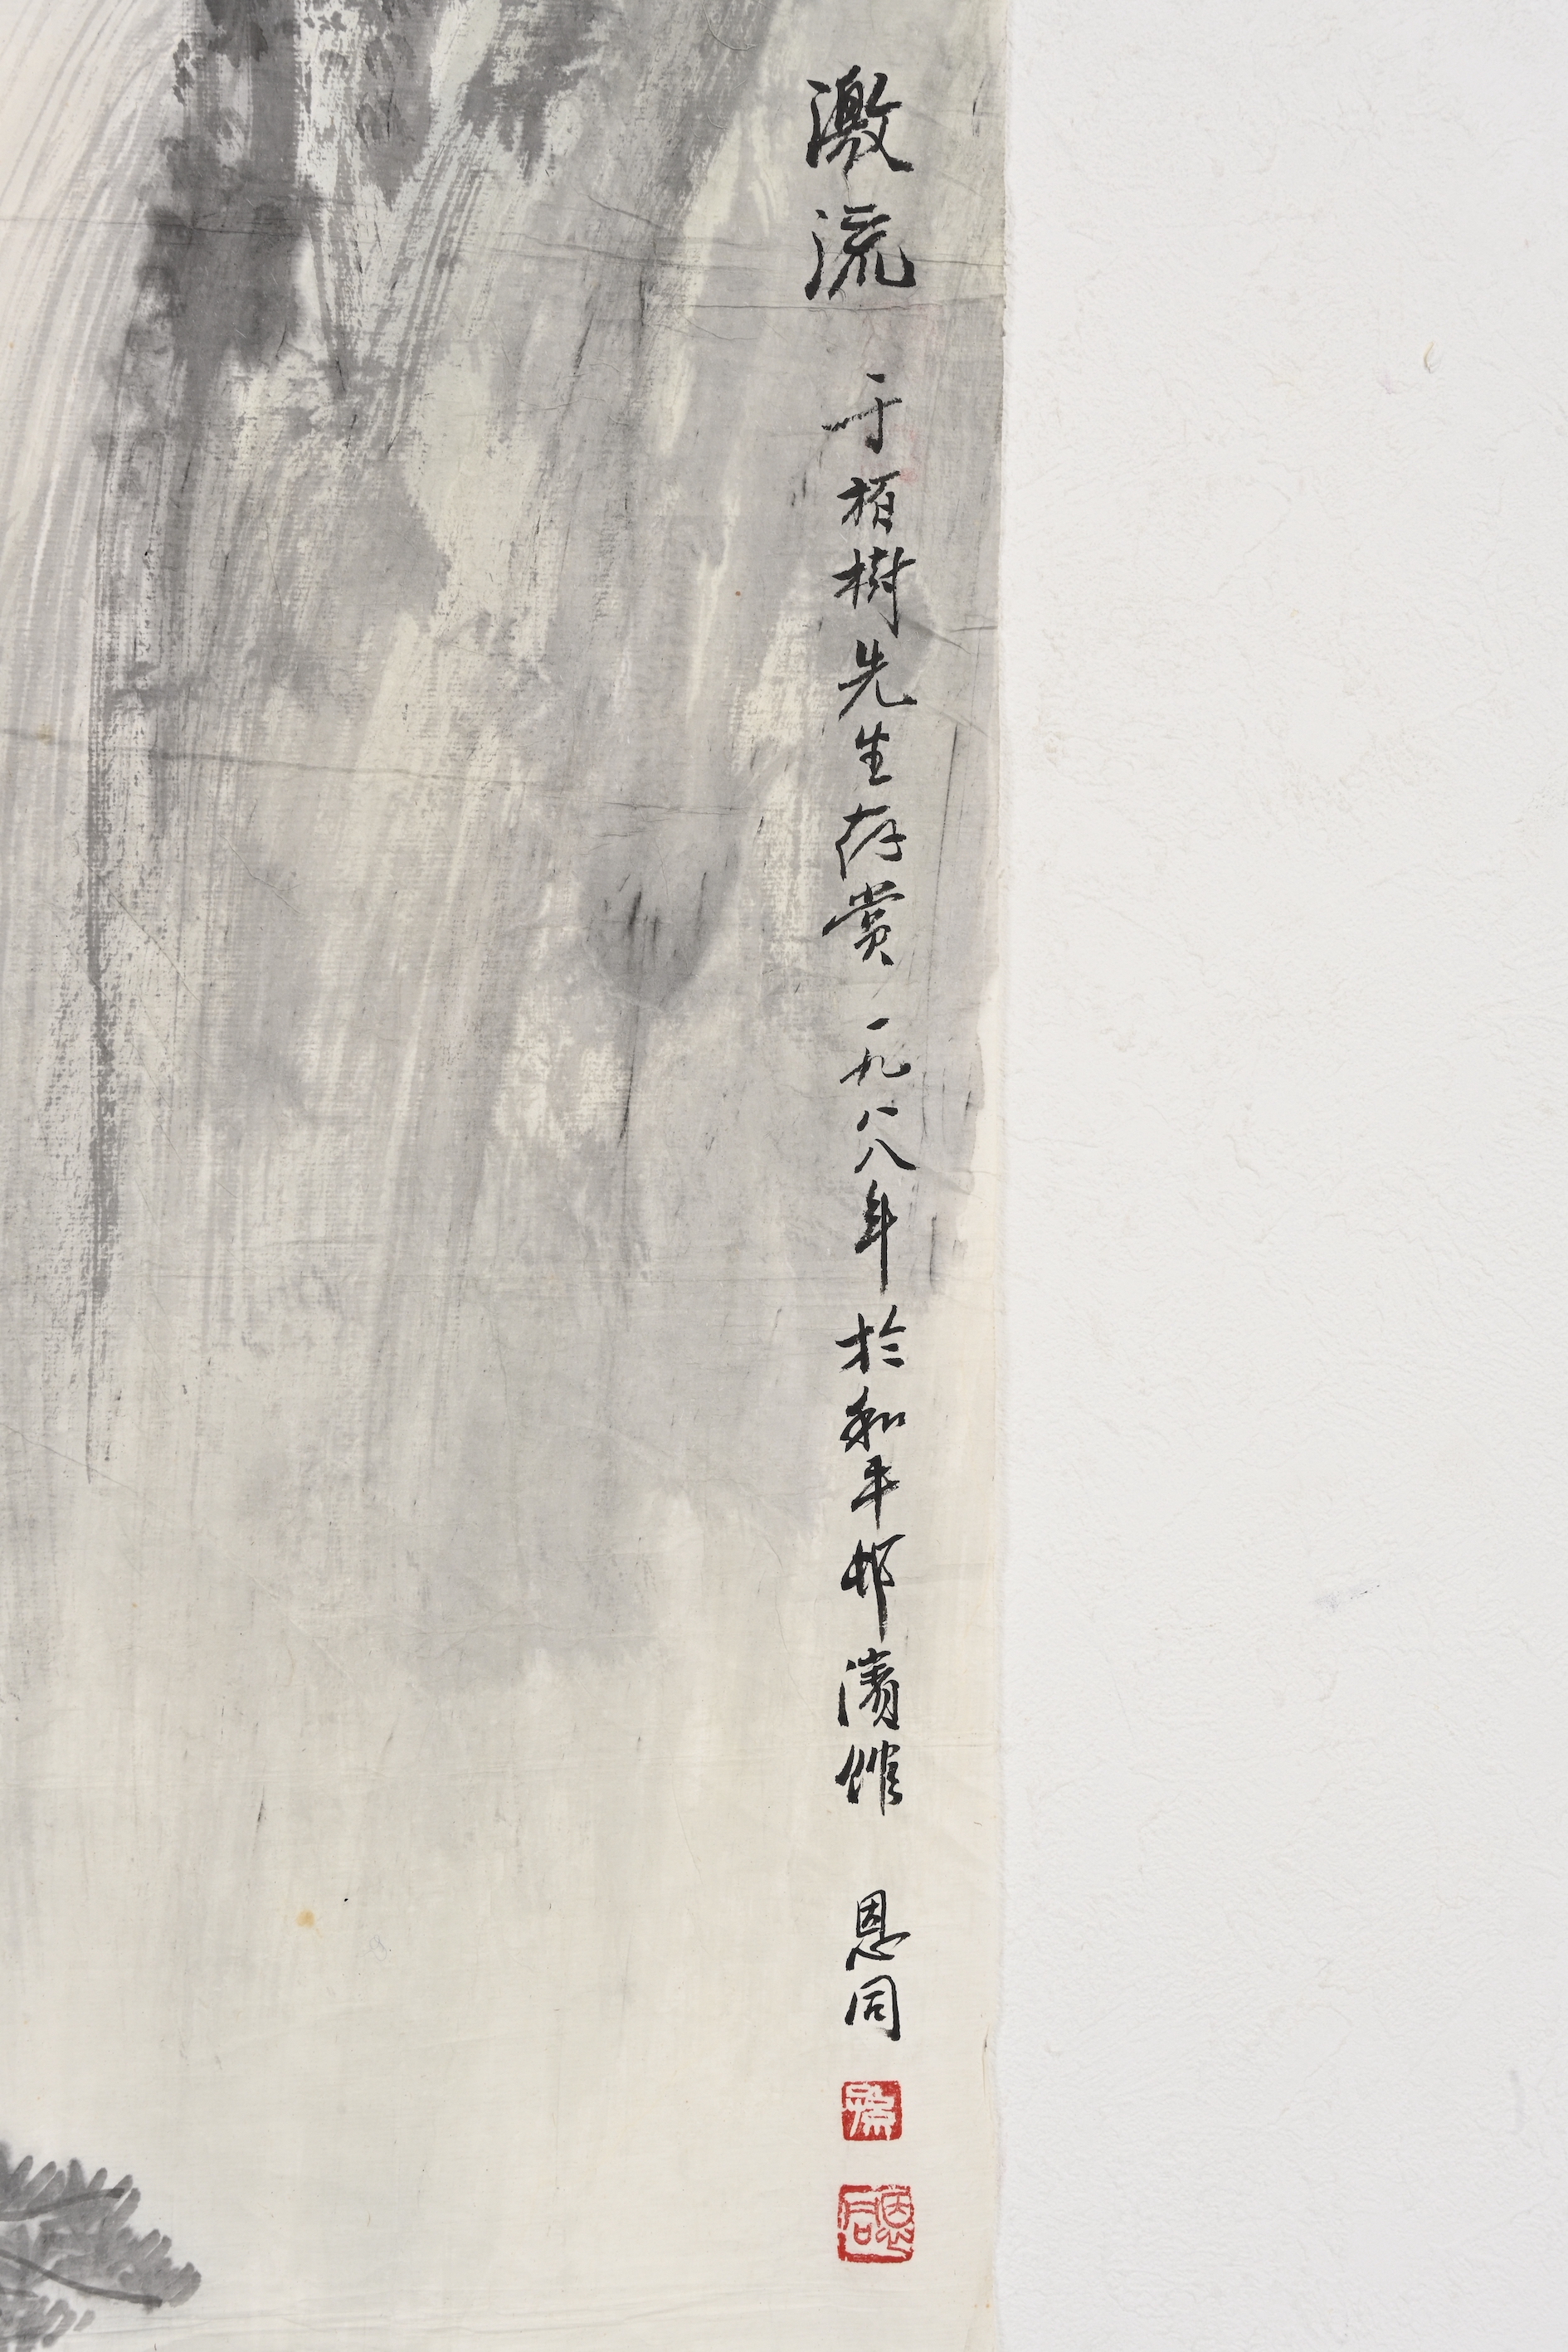 激流 于栢樹先生存赏 一九八八年於和平邨 恩同
恩同